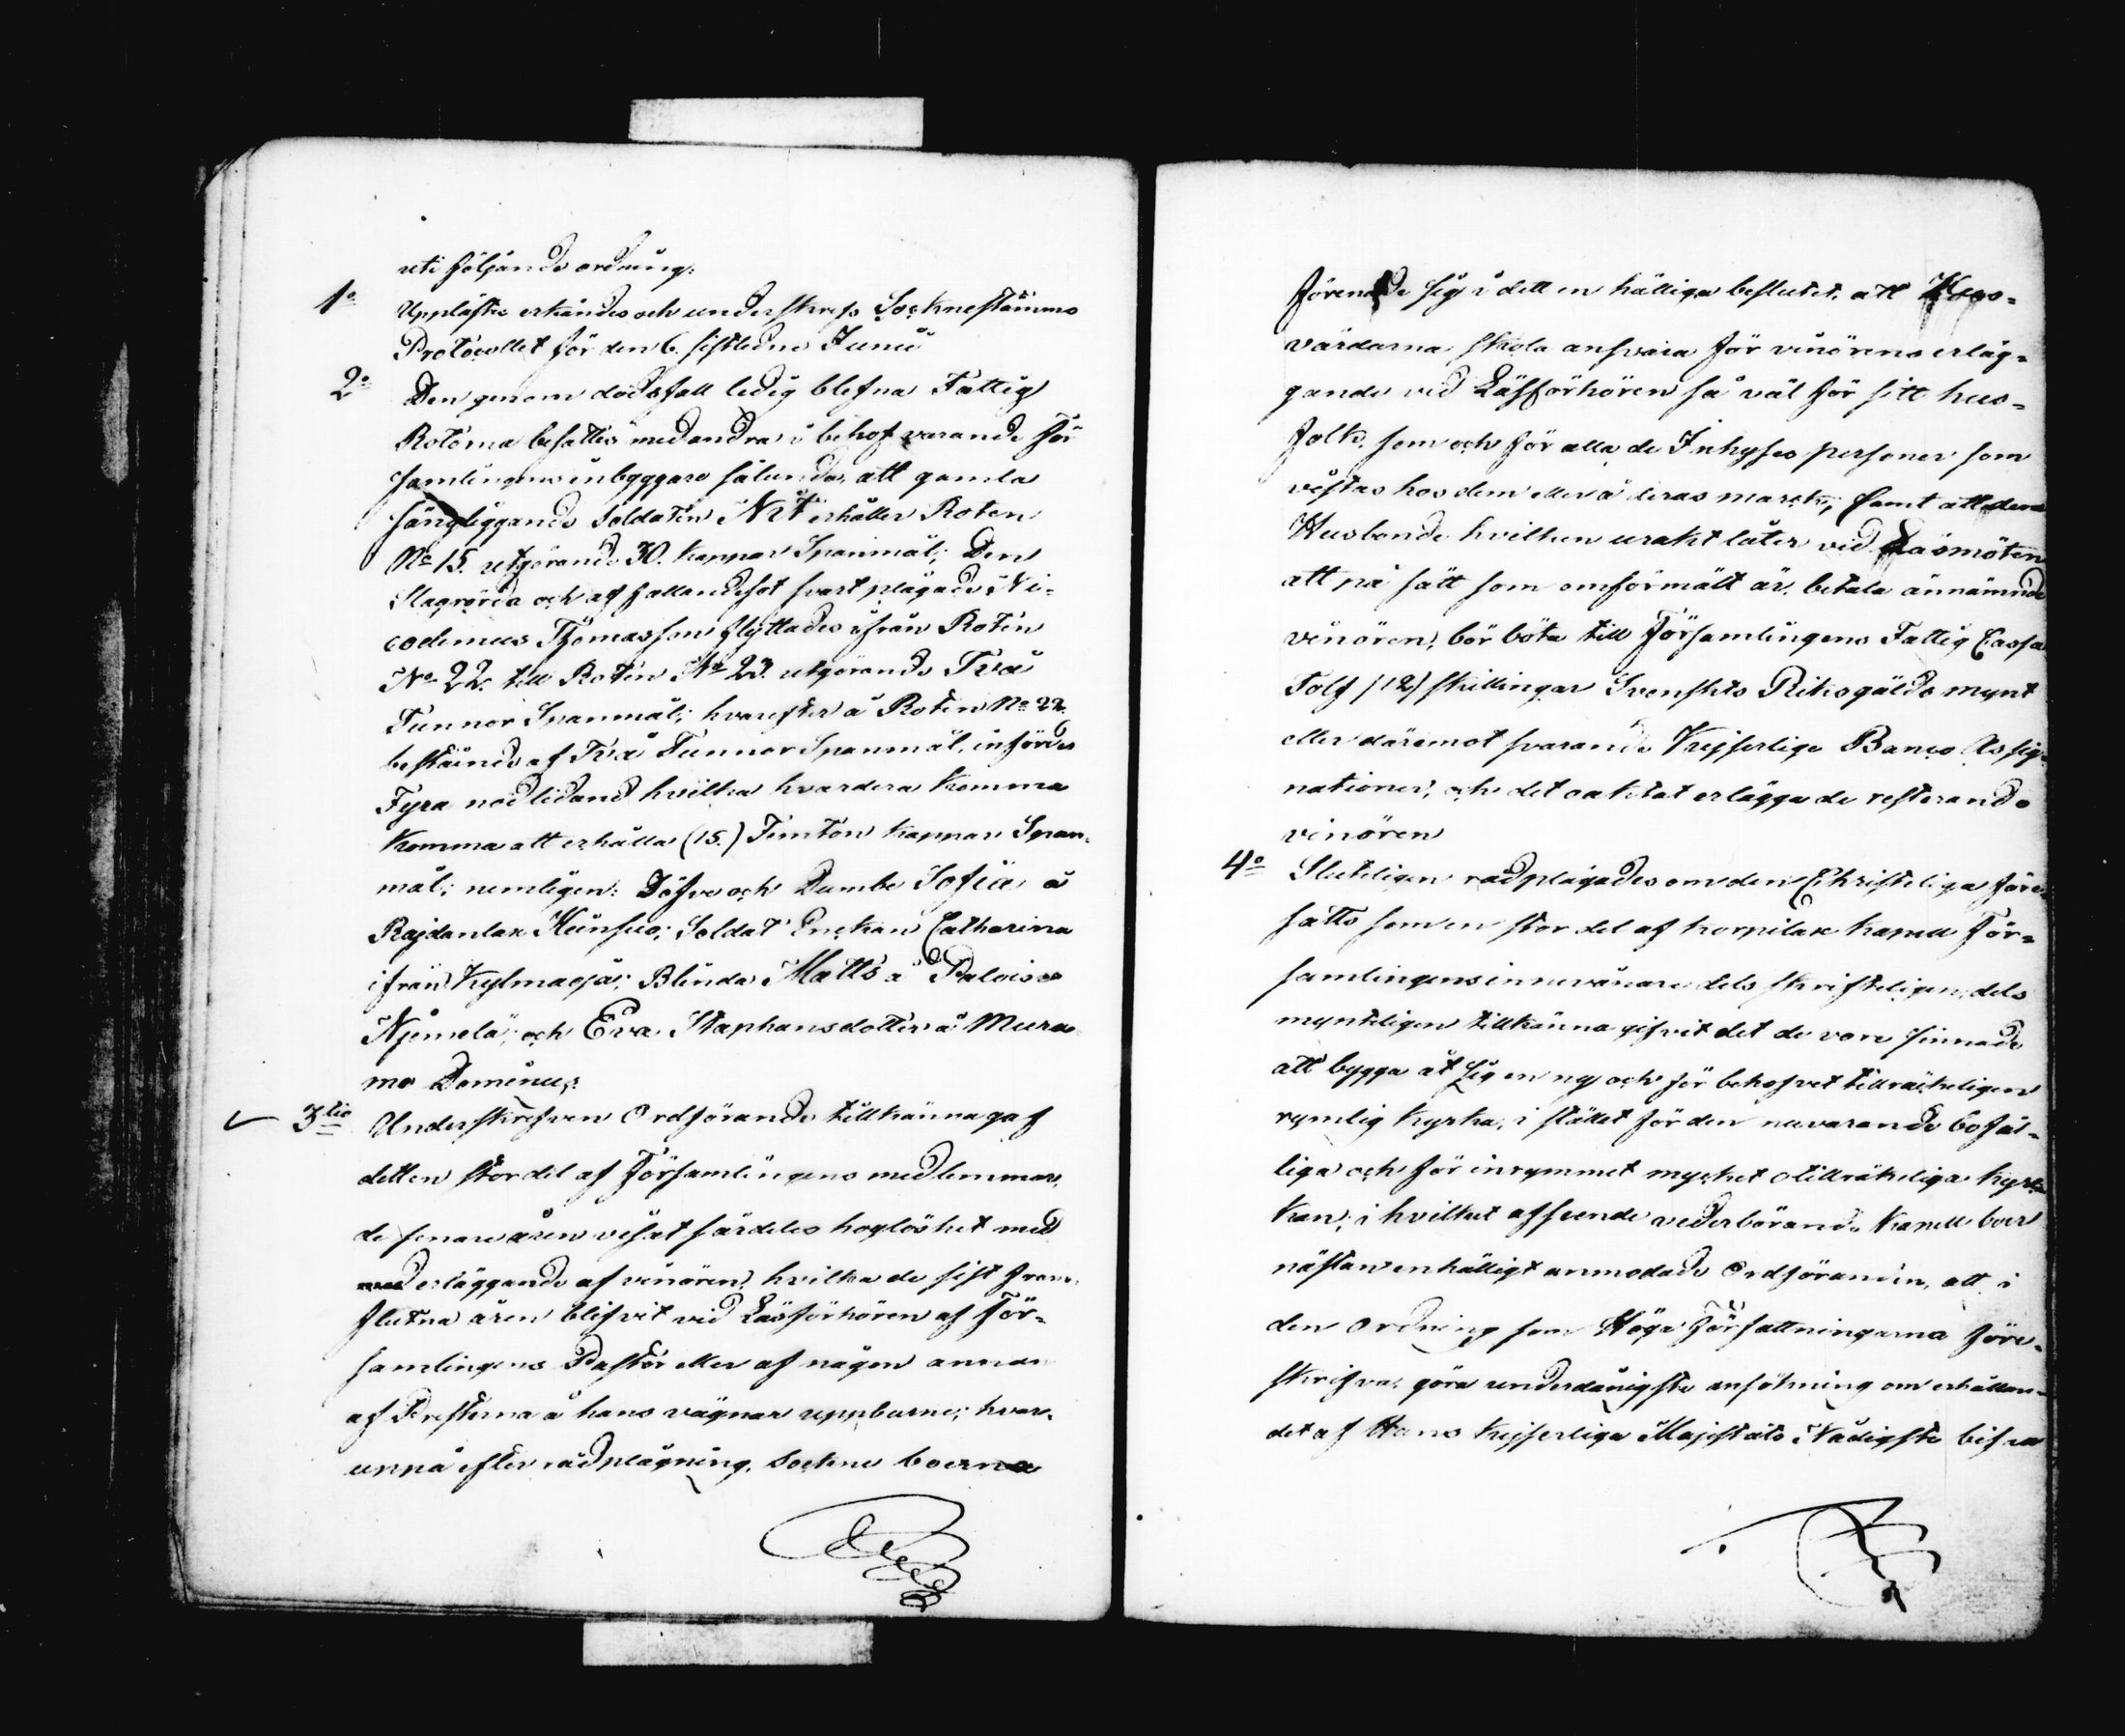 uti följande ordning:
1o Upplästes erkändes och underskrefs Socknestämmo
Protocollet för den 6. sistledne Junii
2o Den genom dödsfall ledig blefna Fattig
Rotorna besattes med andra i behof varande För
samlingens inbyggare sålunda, att gamla
sängliggande soldaten Nit erhåller Roten
No 15. utgörande 30. kappar Spanmål; Den
Slagrörda och af fallandesot svart plågade Ni-
codemus Thomasson flyttades ifrån Roten
No 22. till Roten No 23. utgörande Två
Tunnor Spanmål; hvarefter å Roten No 22.
bestående af Två Tunnor Spanmål, infördes
Fyra nödlidand hvilka hvardera komma
komma att erhålla (15.) Femton kappar Span-
mål; nemligen: Döfve och Dumbe Sofia å
Rajdanlax Heinsuo; Soldat Enckan Catharina
ifrån Kylmäoja; Blinda Matts å Palois
Niemelä; och Eva Staphansdotter å Mura
mo Dominus;
3tio Underskrefven Ordförande tillkänna gaf
dett en stor del af Församlingens medlemmar,
de senare åren visat särdeles hoglöshet med
med erläggande af vinören, hvilka de sist fram-
flutna åren blifvit vid Läsförhören af För-
samlingens Pastor eller af någon annan
af Presterna å hans vägnar uppburne; hvar-
uppå efter rådplägning, Sockne boerna
förenade sig i dett en hälliga beslutet, att Hus-
värdarna skola ansvara för vinörens erläg-
gande vid Läsförhören så väl för sitt hus-
folk, som och för alla de Inhyses personer som
vistas hos dem eller å deras mark; samt att den
Husbonde hvilken urakt låter vid Läsmöten
att på sätt som omförmält är, betala ännämnde
vinören, bör böta till Församlingens Fattig Cassa
Tolf /12/ skillingar Svenskts Riksgälds mynt
eller däremot svarande Kejserlige Banco Assig-
nationer, och det oaktat erlägga de resterande
vinören
4o Sluteligen rådplägades om den Christeliga före-
satts som en stor del af korpilax kapell För-
samlingens innevånare dels skrifteligen, dels
mynteligen tillkänna gifvit det de vore sinnade
att bygga åt sig en ny och för behofvet tillräckeligen
rymlig kyrka, i stället för den nuvarande bofäl-
liga och för inrymmet mycket otillräckeliga kyr-
kan; i hvilket afseende vederbörande kapell boer
nästan enhälligt anmodade Ordföranden, att i
den ordning som Höga Författningarna före-
skrifva, göra underdånigste ansökning om erhållan-
det af Hans Kejserliga Majestäts Nådigste bifva